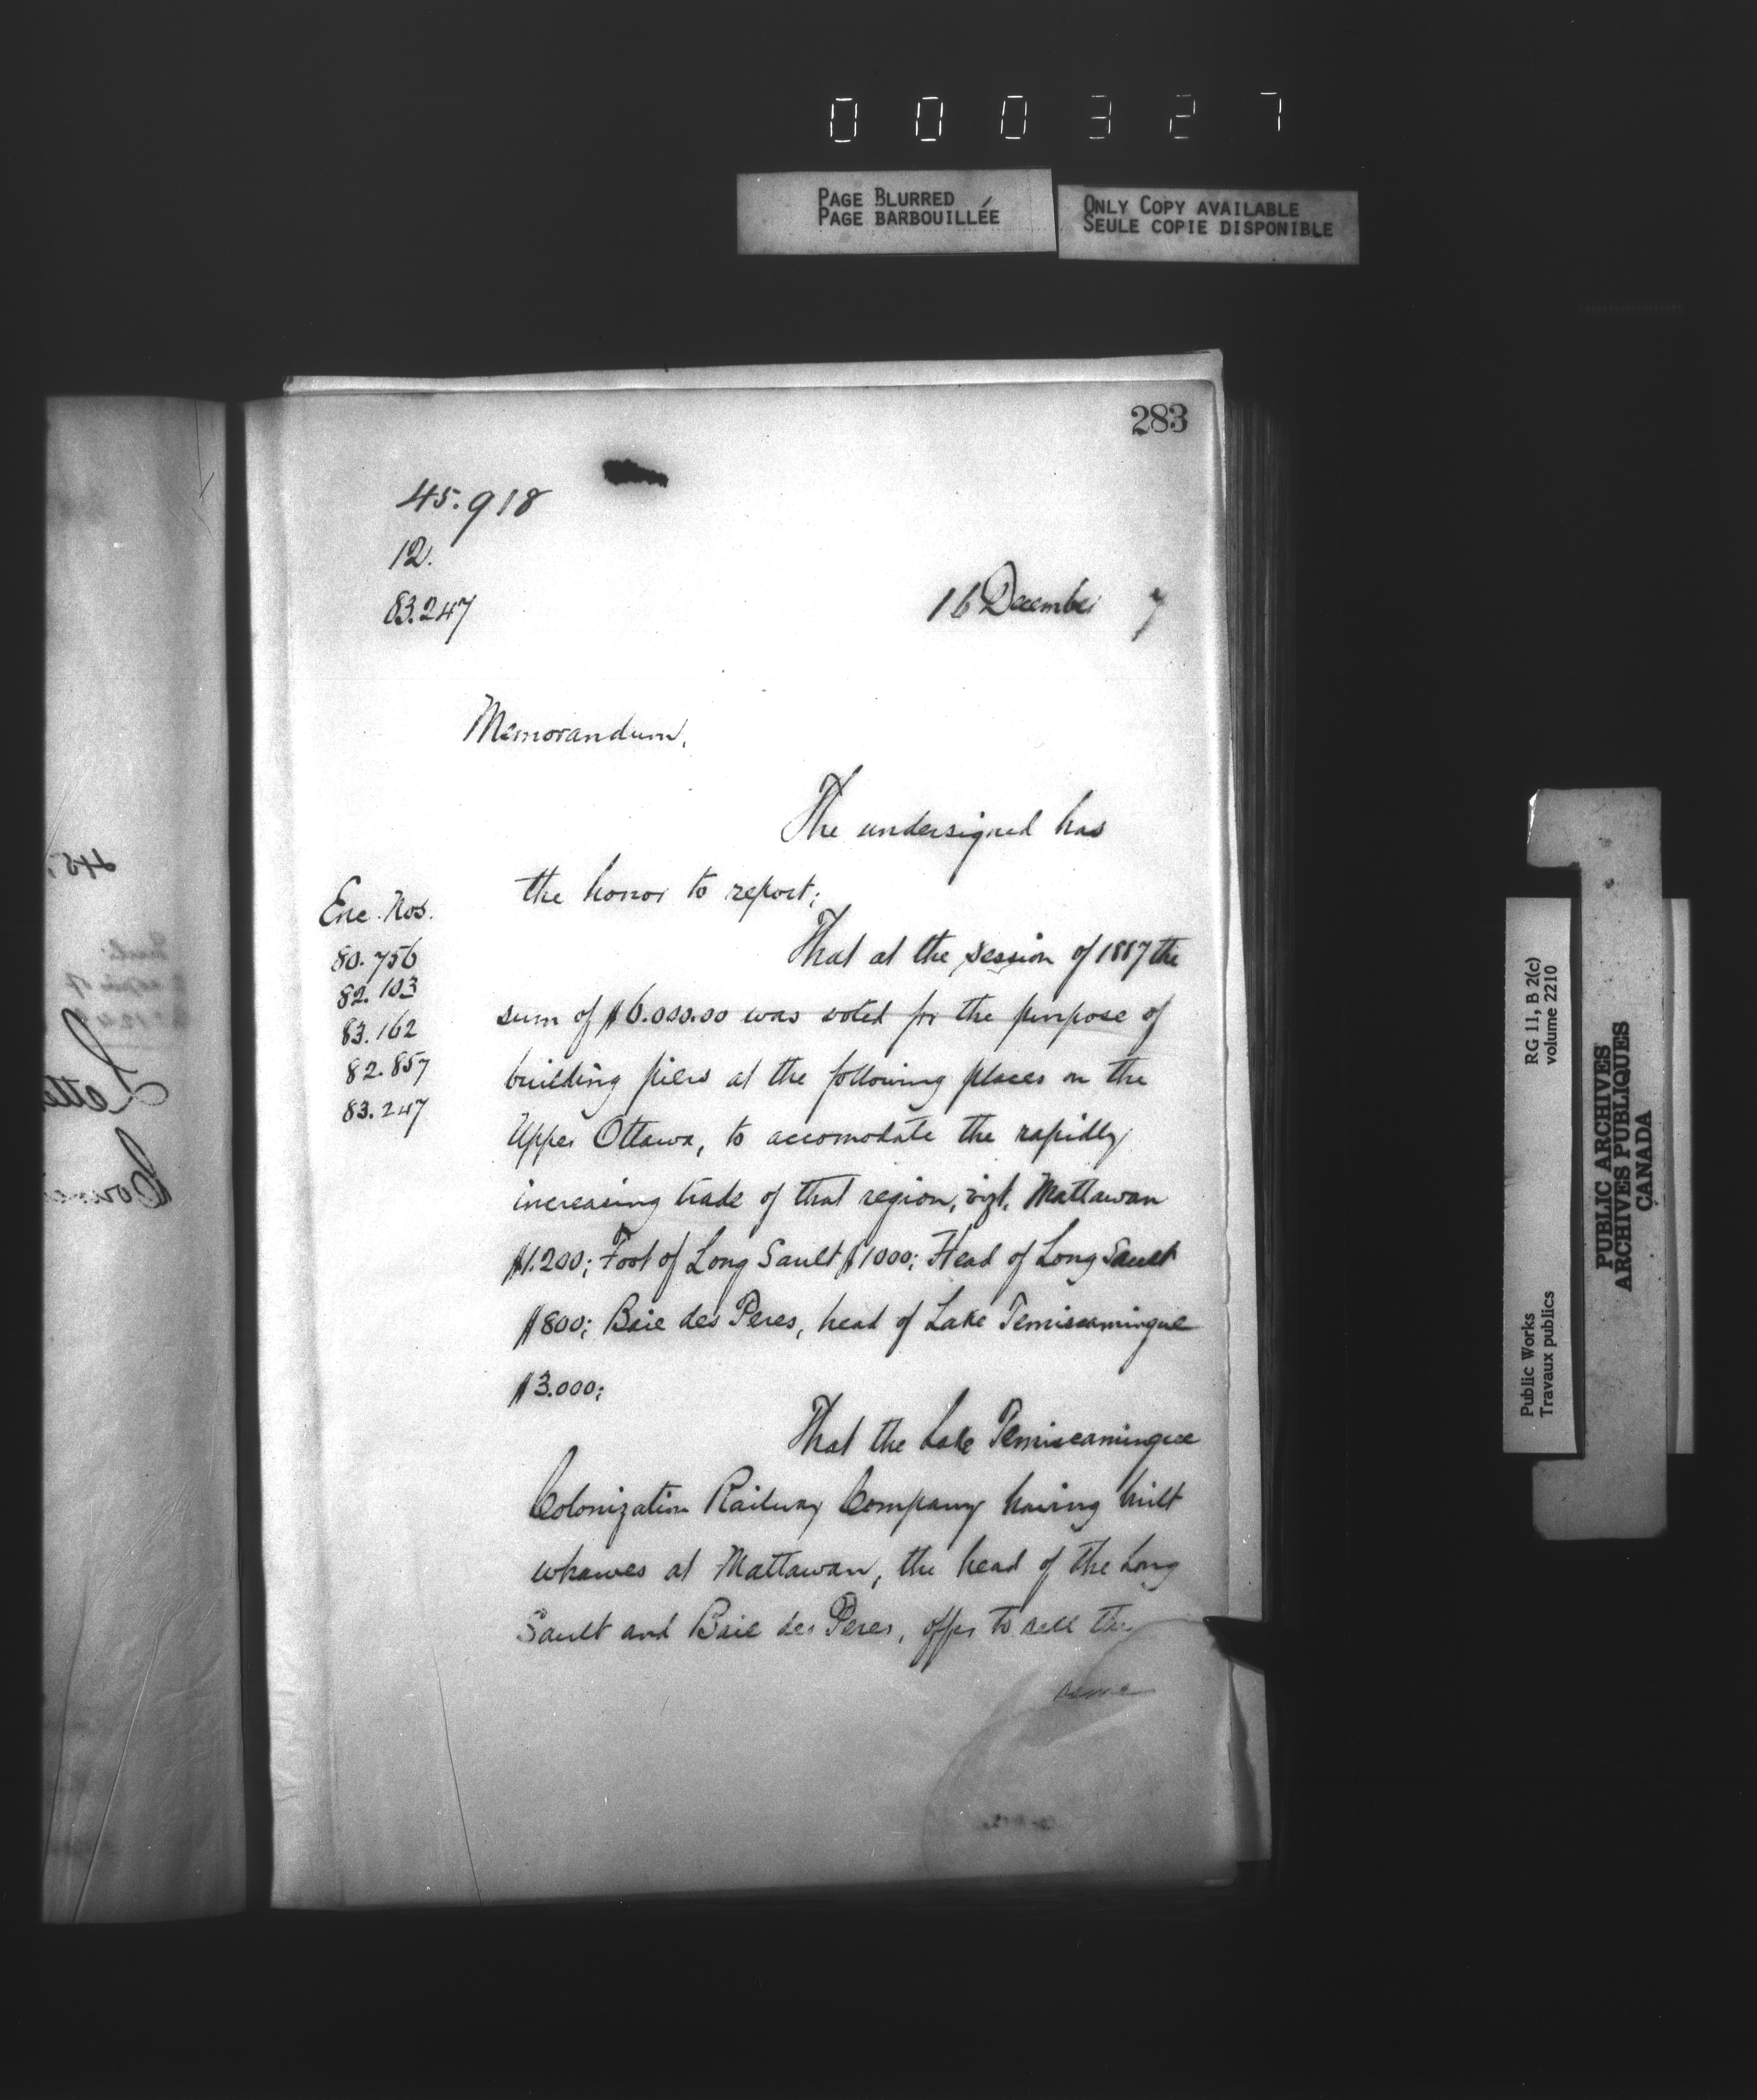 000327
PAGE BLURRED
PAGE BARBOUILLÉE
ONLY COPY AVAILABLE
SEULE COPIE DISPONIBLE
283
45.918
12.
83.247
16 December 7
Memorandum.
The undersigned has
the honor to report;
Enc. Nos.
80.756
82.103
83.162
82.857
83.247
That at the session of 1887 the
sum of $6.000.00 was voted for the purpose of
building piers at the following places on the
Upper Ottawa, to accomodate the rapidly
increasing trade of that region, vizt. Mattawan
$1.200; Foot of Long Sault $1000; Head of Long Sault
$800; Baie des Peres, head of Lake Temiscamingue
$3.000;
That the Lake Temiscamingue
Colonization Railway Company having built
wharves at Mattawan, the head of the Long
Sault and Baie des Peres, offer to sell the
same
RG 11, B 2(c)
volume 2210
Public Works
Travaux publics
PUBLIC ARCHIVES
ARCHIVES PUBLIQUES
CANADA